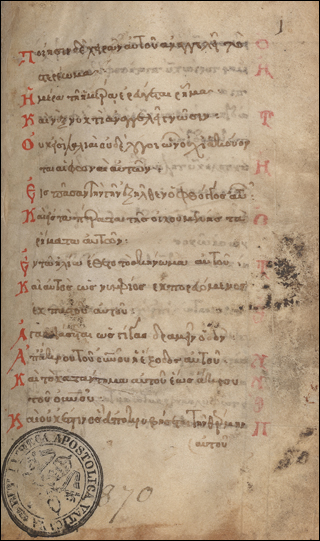 Ποίησιν δὲ χειρῶν αὐτοῦ ἀναγγέλλει τὸ
στερέωμα
Ἡμέρα τῇ ἡμέρα ἐρεύγεται ῥῆμα
Καὶ νὺξ νυκτὶ ἀναγγέλλει γνῶσιν
Οὐκ εἰσὶ λαλιαὶ οὐδὲ λόγοι ὧν οὐχὶ ἀκούον
ται αἱ φωναὶ αὐτῶν
Εἰς πᾶσαν τὴν γῆν ἐξῆλθεν ὁ φθόγγος αὐτῶν
Καὶ εἰς τὰ πέρατα τῆς οἰκουμένης τὰ
ῥήματα αὐτῶν
Ἐν τῷ ἡλίῳ ἔθετο τὸ σκήνωμα αὐτοῦ
Καὶ αὐτὸς ὡς νυμφίος ἐκπορευόμενος
ἐκ παστοῦ αὐτοῦ
Ἀγαλλιάσεται ὡς γίγας δραμεῖν ὁδόν
Ἀπ' ἄκρου τοῦ οὐνοῦ ἡ ἔξοδος αὐτοῦ
Καὶ τὸ κατάντημα αὐτοῦ ἕως ἄκρου
τοῦ οὐνοῦ
Καὶ οὐκ ἔστιν ὃς ἀποκρυβήσεται τῆς θέρμης
αὐτοῦ
APOSTOLICA VATICANA
870